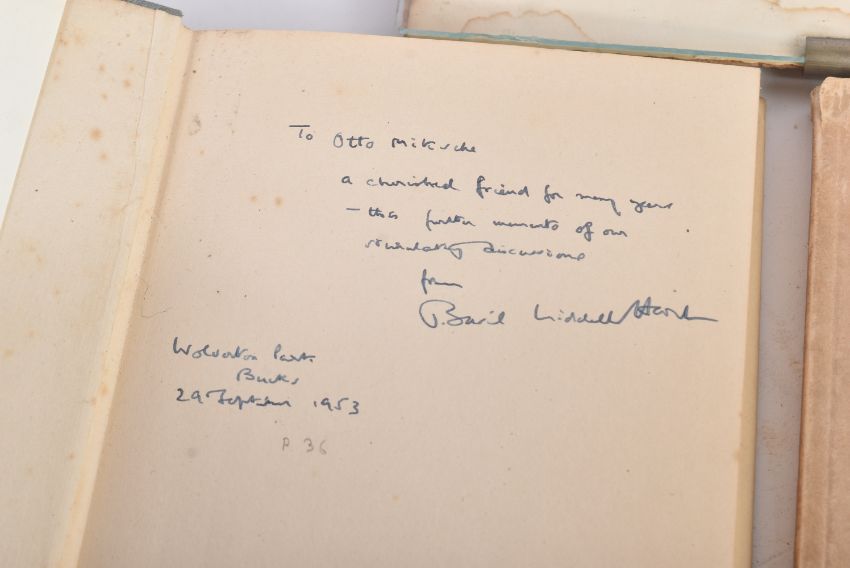 To Otto Miksche
a cherished friend for many years
– this further memento of our
stimulating discussions
from
Basil Liddell Hart
Wolverton Park
Bucks
29 September 1953
P 36